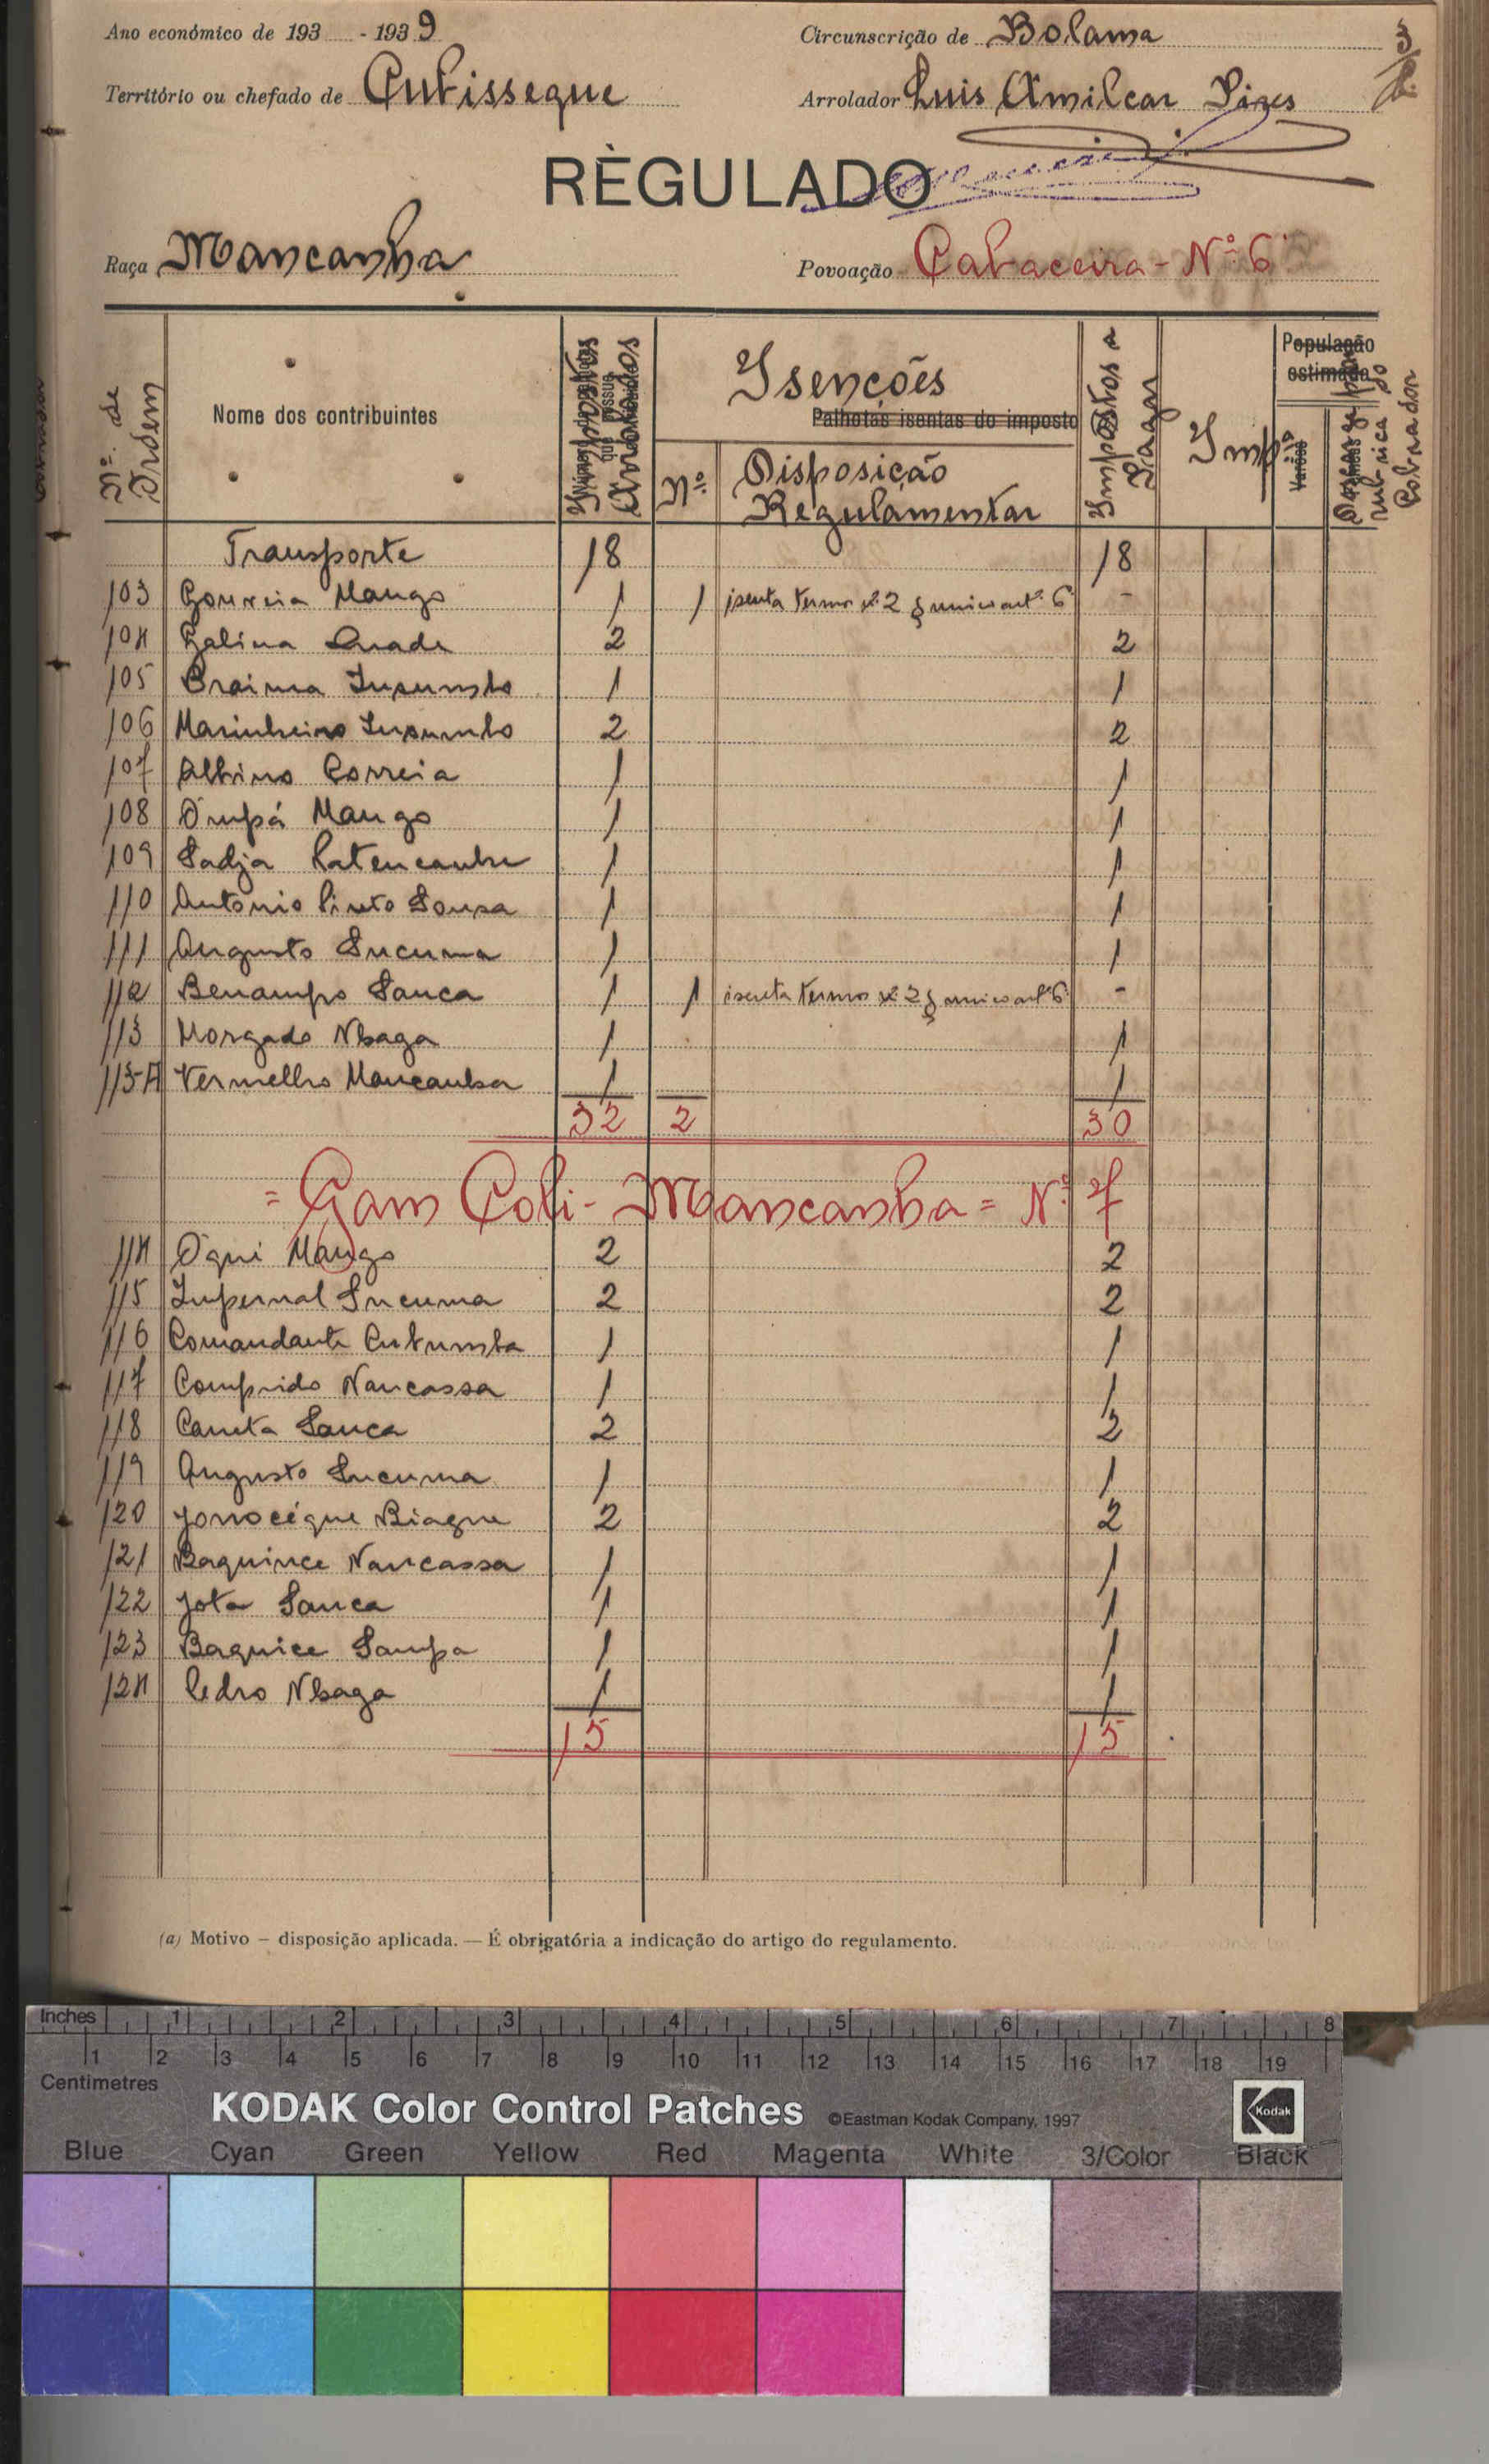 Ano económico de 193 - 1939 Circunscrição de Bolama
3
Território ou chefado de Cubisseque Arrolador Luis Amilcar Pires
RÈGULADO
Raça Mancanha Povoação Cabaceira - Nº 6
Nº. de Ordem
Nome dos contribuintes
Impostos Arrolados
Isenções
Palhotas isentas do imposto
Nº
Disposição Regulamentar
Impostos a Pagar
População estimada
Varões
rubrica do Cobrador
Transporte 18 18
103 Correia Mango 1 1 isenta termo nº 2 § unico artº 6 -
104 Galina Quade 2 2
105 Braima Insumbo 1 1
106 Marinheiro Insumbo 2 2
107 Albino Correia 1 1
108 Ompá Mango 1 1
109 Sadja 1 1
110 Antonio Pinto Sousa 1 1
111 Augusto Sucuma 1 1
112 Benampo Sanca 1 1 isenta termo nº 2 § unico artº 6 -
113 Morgado Nbaga 1 1
113-A Vermelho Mancanha 1 1
32 2 30
= Gam Cobi - Mancanha = Nº 7
114 Oqui Mango 2 2
115 Infernal Sucuma 2 2
116 Comandante Cutumba 1 1
117 Comprido Nancassa 1 1
118 Caneta Sanca 2 2
119 Augusto Sucuma 1 1
120 Jonocéque Biague 2 2
121 Baquince Nancassa 1 1
122 Jota Sanca 1 1
123 Baquice Sampa 1 1
124 Pedro Nbaga 1 1
15 15
(a) Motivo – disposição aplicada. — É obrigatória a indicação do artigo do regulamento.
Inches 1 2 3 4 5 6 7 8
1 2 3 4 5 6 7 8 9 10 11 12 13 14 15 16 17 18 19
Centimetres
KODAK Color Control Patches ©Eastman Kodak Company, 1997 Kodak
Blue Cyan Green Yellow Red Magenta White 3/Color Black